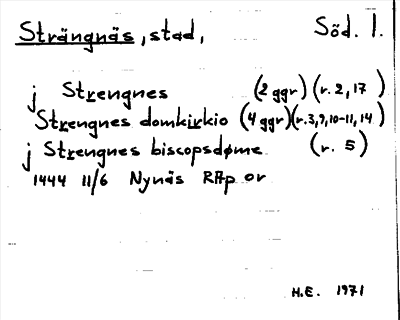 Strängnäs, stad, Söd. l.
j Strengnes (2 ggr) (r. 2, 17)
Strengnes domkirkio (4 ggr) (r. 3, 9, 10-11, 14)
j Strengnes biscopsdøme (r. 5)
1444 11/6 Nynäs RAp or
H.E. 1971